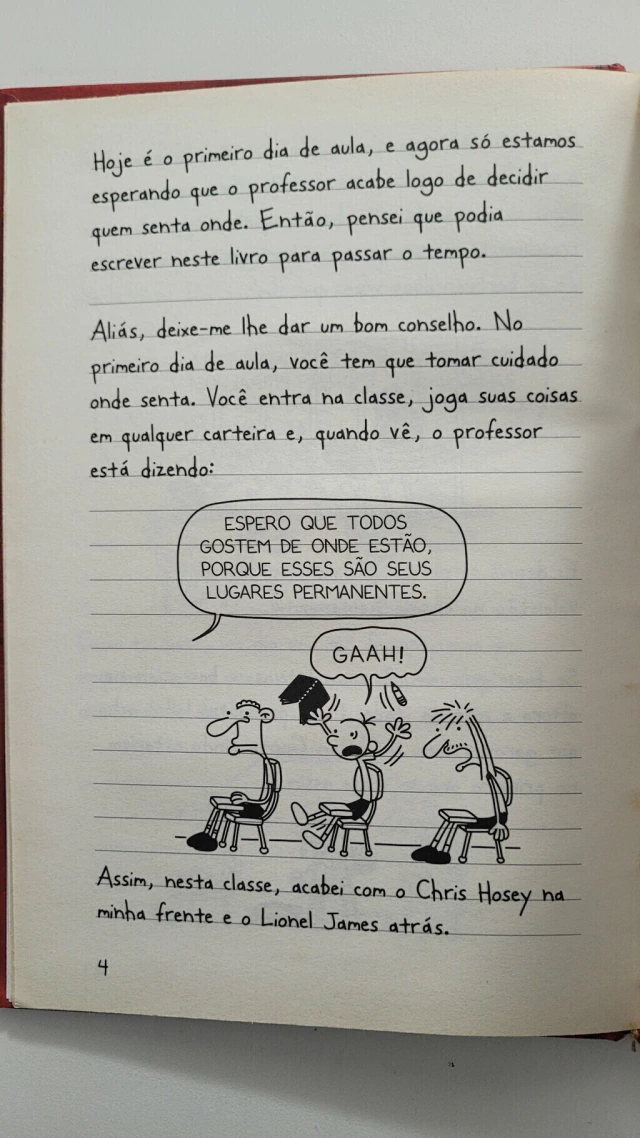 Hoje é o primeiro dia de aula, e agora só estamos
esperando que o professor acabe logo de decidir
quem senta onde. Então, pensei que podia
escrever neste livro para passar o tempo.
Aliás, deixe-me lhe dar um bom conselho. No
primeiro dia de aula, você tem que tomar cuidado
onde senta. Você entra na classe, joga suas coisas
em qualquer carteira e, quando vê, o professor
está dizendo:
ESPERO QUE TODOS
GOSTEM DE ONDE ESTÃO,
PORQUE ESSES SÃO SEUS
LUGARES PERMANENTES.
GAAH!
Assim, nesta classe, acabei com o Chris Hosey na
minha frente e o Lionel James atrás.
4